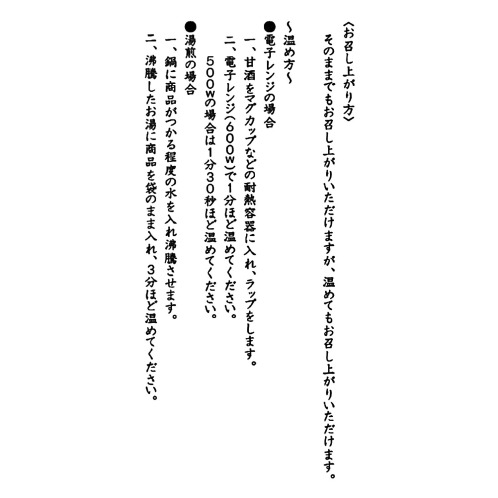 〈お召し上がり方〉
そのままでもお召し上がりいただけますが、温めてもお召し上がりいただけます。
～温め方～
●電子レンジの場合
一、甘酒をマグカップなどの耐熱容器に入れ、ラップをします。
二、電子レンジ(600w)で1分ほど温めてください。
500wの場合は1分30秒ほど温めてください。
●湯煎の場合
一、鍋に商品がつかる程度の水を入れ沸騰させます。
二、沸騰したお湯に商品を袋のまま入れ、3分ほど温めてください。